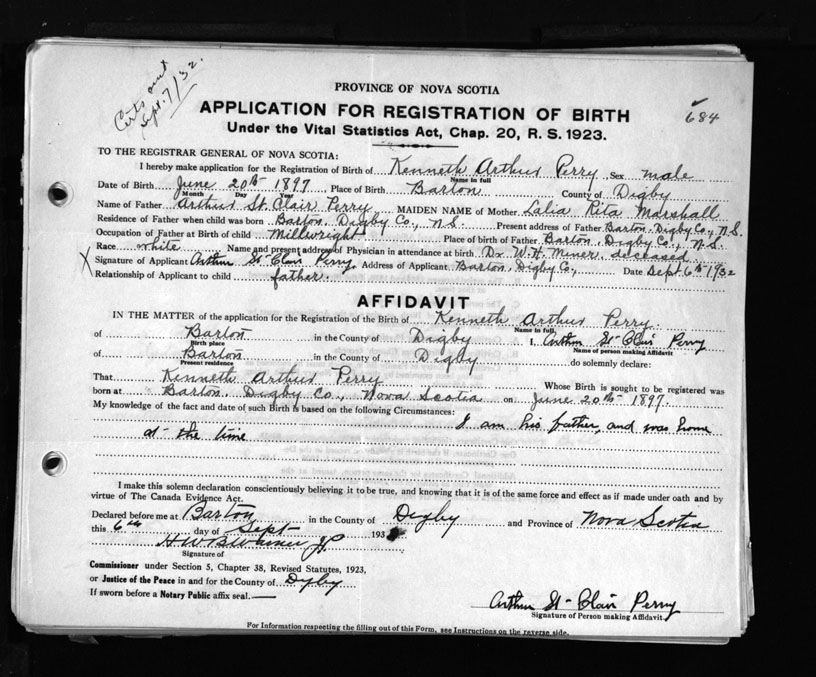 Certs out
Sept. 7/32.
PROVINCE OF NOVA SCOTIA
APPLICATION FOR REGISTRATION OF BIRTH
684
Under the Vital Statistics Act, Chap. 20, R. S. 1923.
TO THE REGISTRAR GENERAL OF NOVA SCOTIA:
I hereby make application for the Registration of Birth of Kenneth Arthur Perry Sex male
Name in full
Date of Birth June 20th 1897 Place of Birth Barton County of Digby
Month Day Year
Name of Father Arthur St. Clair Perry MAIDEN NAME of Mother Lalia Rita Marshall
Residence of Father when child was born Barton, Digby Co., N.S. Present address of Father Barton, Digby Co., N.S.
Occupation of Father at Birth of child Millwright Place of birth of Father Barton, Digby Co., N.S.
Race white Name and present address of Physician in attendance at birth Dr W. H. Miner, deceased
X Signature of Applicant Arthur St Clair Perry Address of Applicant Barton, Digby Co., Date Sept. 6th 1932
Relationship of Applicant to child father.
AFFIDAVIT
IN THE MATTER of the application for the Registration of the Birth of Kenneth Arthur Perry
Name in full
of Barton in the County of Digby I, Arthur St Clair Perry
Birth place Name of person making Affidavit
of Barton in the County of Digby do solemnly declare:
Present residence
That Kenneth Arthur Perry Whose Birth is sought to be registered was
born at Barton, Digby Co., Nova Scotia on June 20th 1897.
My knowledge of the fact and date of such Birth is based on the following Circumstances: I am his father, and was home
at the time
I make this solemn declaration conscientiously believing it to be true, and knowing that it is of the same force and effect as if made under oath and by
virtue of The Canada Evidence Act.
Declared before me at Barton in the County of Digby and Province of Nova Scotia
this 6th day of Sept 193
J.P.
Signature of
Commissioner under Section 5, Chapter 38, Revised Statutes, 1923,
or Justice of the Peace in and for the County of Digby
If sworn before a Notary Public affix seal.
Arthur St Clair Perry
Signature of Person making Affidavit.
For Information respecting the filling out of this Form, see Instructions on the reverse side.